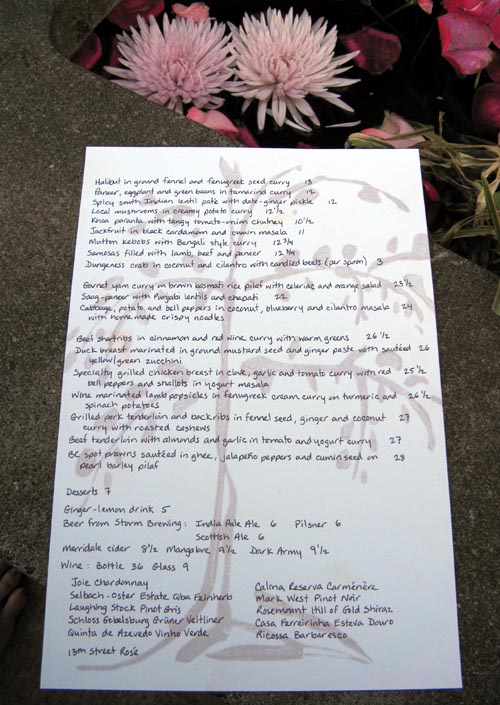 Halibut in ground fennel and fenugreek seed curry 13
Paneer, eggplant and green beans in tamarind curry 12
Spicy south Indian lentil paté with date-ginger pickle 12
Local mushrooms in creamy potato curry 12½
paranta with tangy tomato-onion chutney 10½
Jackfruit in black cardamom and cumin masala 11
Mutton kebobs with Bengali style curry 12¾
Samosas filled with lamb, beef and paneer 12¾
Dungeness crab in coconut and cilantro with candied beets (per spoon) 3
Garnet yam curry on brown basmati rice pilaf with celeriac and orange salad 23½
Saag-paneer with Punjabi lentils and chapati 22
Cabbage, potato and bell peppers in coconut, blueberry and cilantro masala 24
with homemade crispy noodles
Beef shortribs in cinnamon and red wine curry with warm greens 26½
Duck breast marinated in ground mustard seed and ginger paste with sautéed 26
yellow/green zucchini
Specialty grilled chicken breast in clove, garlic and tomato curry with red 25½
bell peppers and shallots in yogurt masala
Wine marinated lamb popsicles in fenugreek cream curry on turmeric and 26½
spinach potatoes
Grilled pork tenderloin and backribs in fennel seed, ginger and coconut 27
curry with roasted cashews
Beef tenderloin with almonds and garlic in tomato and yogurt curry 27
BC spot prawns sautéed in ghee, jalapeño peppers and cumin seed on 28
pearl barley pilaf
Desserts 7
Ginger-lemon drink 5
Beer from Storm Brewing: India Pale Ale 6 Pilsner 6
Scottish Ale 6
Merridale cider 8½ Mangobre 9½ Dark Army 9½
Wine: Bottle 36 Glass 9
Joie Chardonnay
Selbach-Oster Estate Qba Feinherb
Laughing Stock Pinot Gris
Schloss Gobelsburg Grüner Veltliner
Quinta de Azevedo Vinho Verde
13th Street Rosé
Calina Reserva Carménère
Mark West Pinot Noir
Rosemount Hill of Gold Shiraz
Casa Ferreirinha Esteva Douro
Ricossa Barbaresco